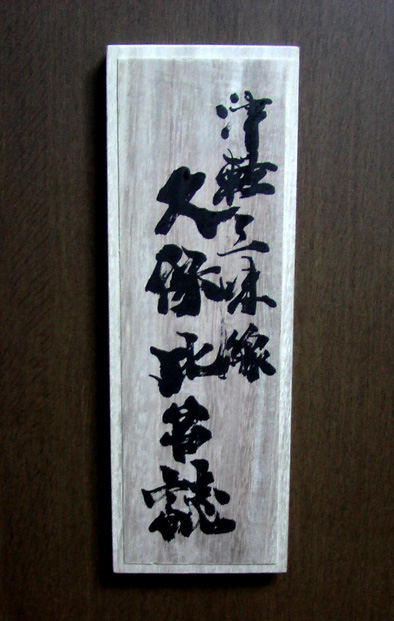 津軽三味線
久保比呂誌